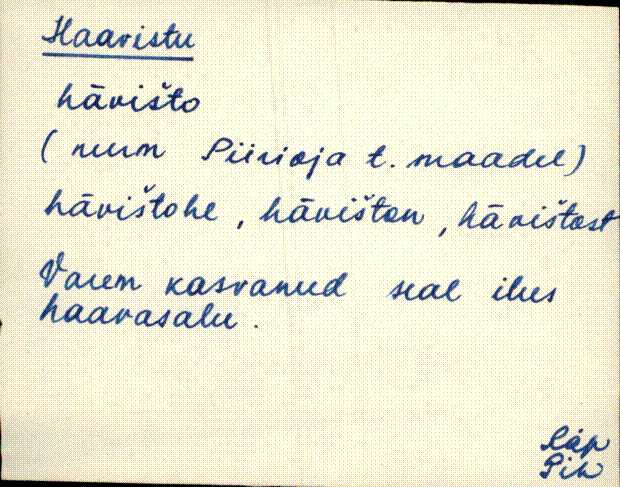 Haavistu
hävišto
(nurm Piirioja t. maadel)
hävištohe, hävišton, hävištost
Varem kasvanud seal ilus
haavasalu.
Räp
Pih